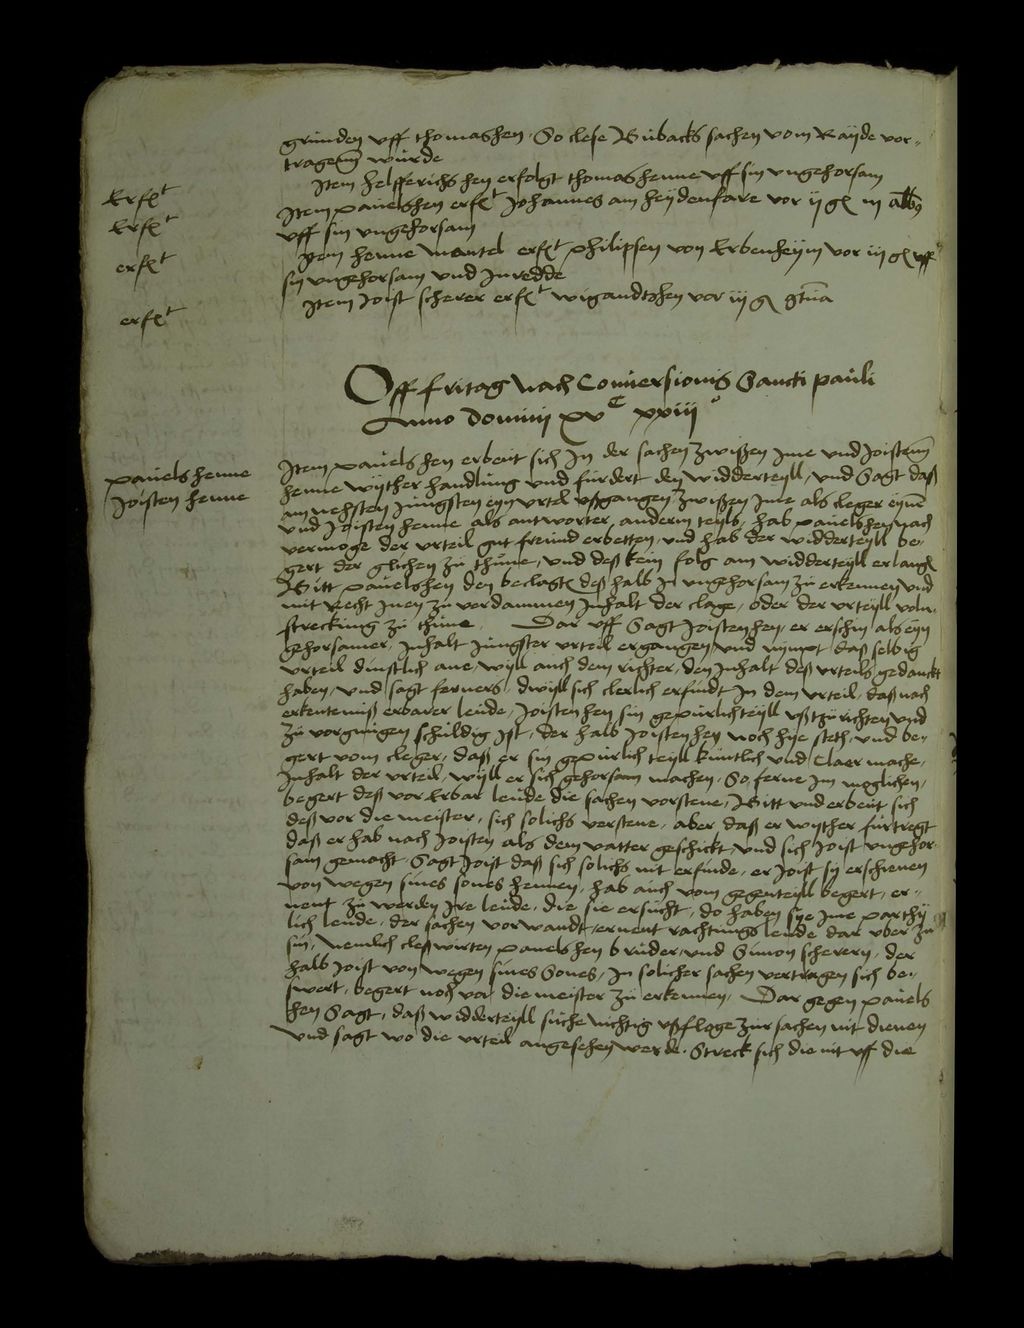 grunden uff thomashen. So clese Rubacks sachen vom Rayde vor-
tragenn wurde
Erfolgt
Item Helfferichs hen erfolgt thomas henne uff sin ungehorsam
Erfolgt
Item pauelshen erfolgt Johannes am heydenfare vor ij gl iij albus
uff sin ungehorsam
erfolgt
Item henne Mentel erfolgt philipsen von Erbenheym vor iij gl uff
sin ungehorsam und Inredde
erfolgt
Item Joist scherer erfolgt wigandtzhen vor iij gl
Off fritag nach Conuersionis Sancti pauli
Anno domini xv C xxiii o
pauels henne
Joisten henne
Item pauelshen erbeut sich In der sachen zwißen Ime und Joistenn
henne wyther handlung und furdert den widderteyll, und Sagt daß
am nehsten Jungsten eyn urtel ußgangen zwißen Ime als cleger eyns
und Joisten henne als antworter anderm teyls, hab pauelshen nach
vermoge der urteil gut freund erbetten, und hab der widderteyll be-
gert der glichen zu thune, und deß kein folg am widderteyll erlangt
Bitt pauelshen den beclagten deß halb In ungehorsam zu erkennen und
mit Recht Inen zu verdammen Inhalt der clage, oder der urteyll voln-
streckung zu thune. Dar uff Sagt Joistenhen, er erschin als eyn
gehorsamer, Inhalt Jungster urteil ergangen und nympt daß selbig
urteil dinstlich ane, wyll auch dem richter, den Inhalt deß urteils gedanckt
haben, und sagt ferners, dwyll sich clerlich erfindt In dem urteil, daß nach
erkentenuß erbarer leude, Joistenhen sin gepurlichteyll ußtzurichten und
zu vorgnugen schuldig Ist, der halb Joistenhen noch hye steth, und be-
gert vom cleger, daß er sin gepurlich teyll kuntlich und Claer mache,
Inhalt der urteil, wyll er sich gehorsam machen, So ferne Im moglichen,
begert deß vor Erbar leude die sachen vorstene, Bitt und erbeut sich
deß vor die meister, sich solichs verstene, aber daß er wyther furtregt
daß er hab nach Joisten als dem vatter geschickt, und sich Joist ungehor-
sam gemacht. Sagt Joist daß sich solichs nit erfinde, er Joist sy erschienen
von wegen sines sones hennen, hab auch vom gegenteyll begert, er-
nent zu werden Ire leude, die sie ersucht, do haben sye Ime parthy
lich leude, der sachen vorwandt, ernent rachtungs leude dar uber zu
sin, nemlich cleßwirten pauelshen bruder, und Simon scherern, der
halb Joist von wegen sines Sones, In solicher sachen vertragen sich be-
swert, begert noch vor die meister zu erkennen. Dar gegen pauels
hen Sagt, daß widderteyll suche nichtig ußfloge zur sachen nit dienen
und sagt wo die urteil angesehen werde. Streck sich die nit uff die